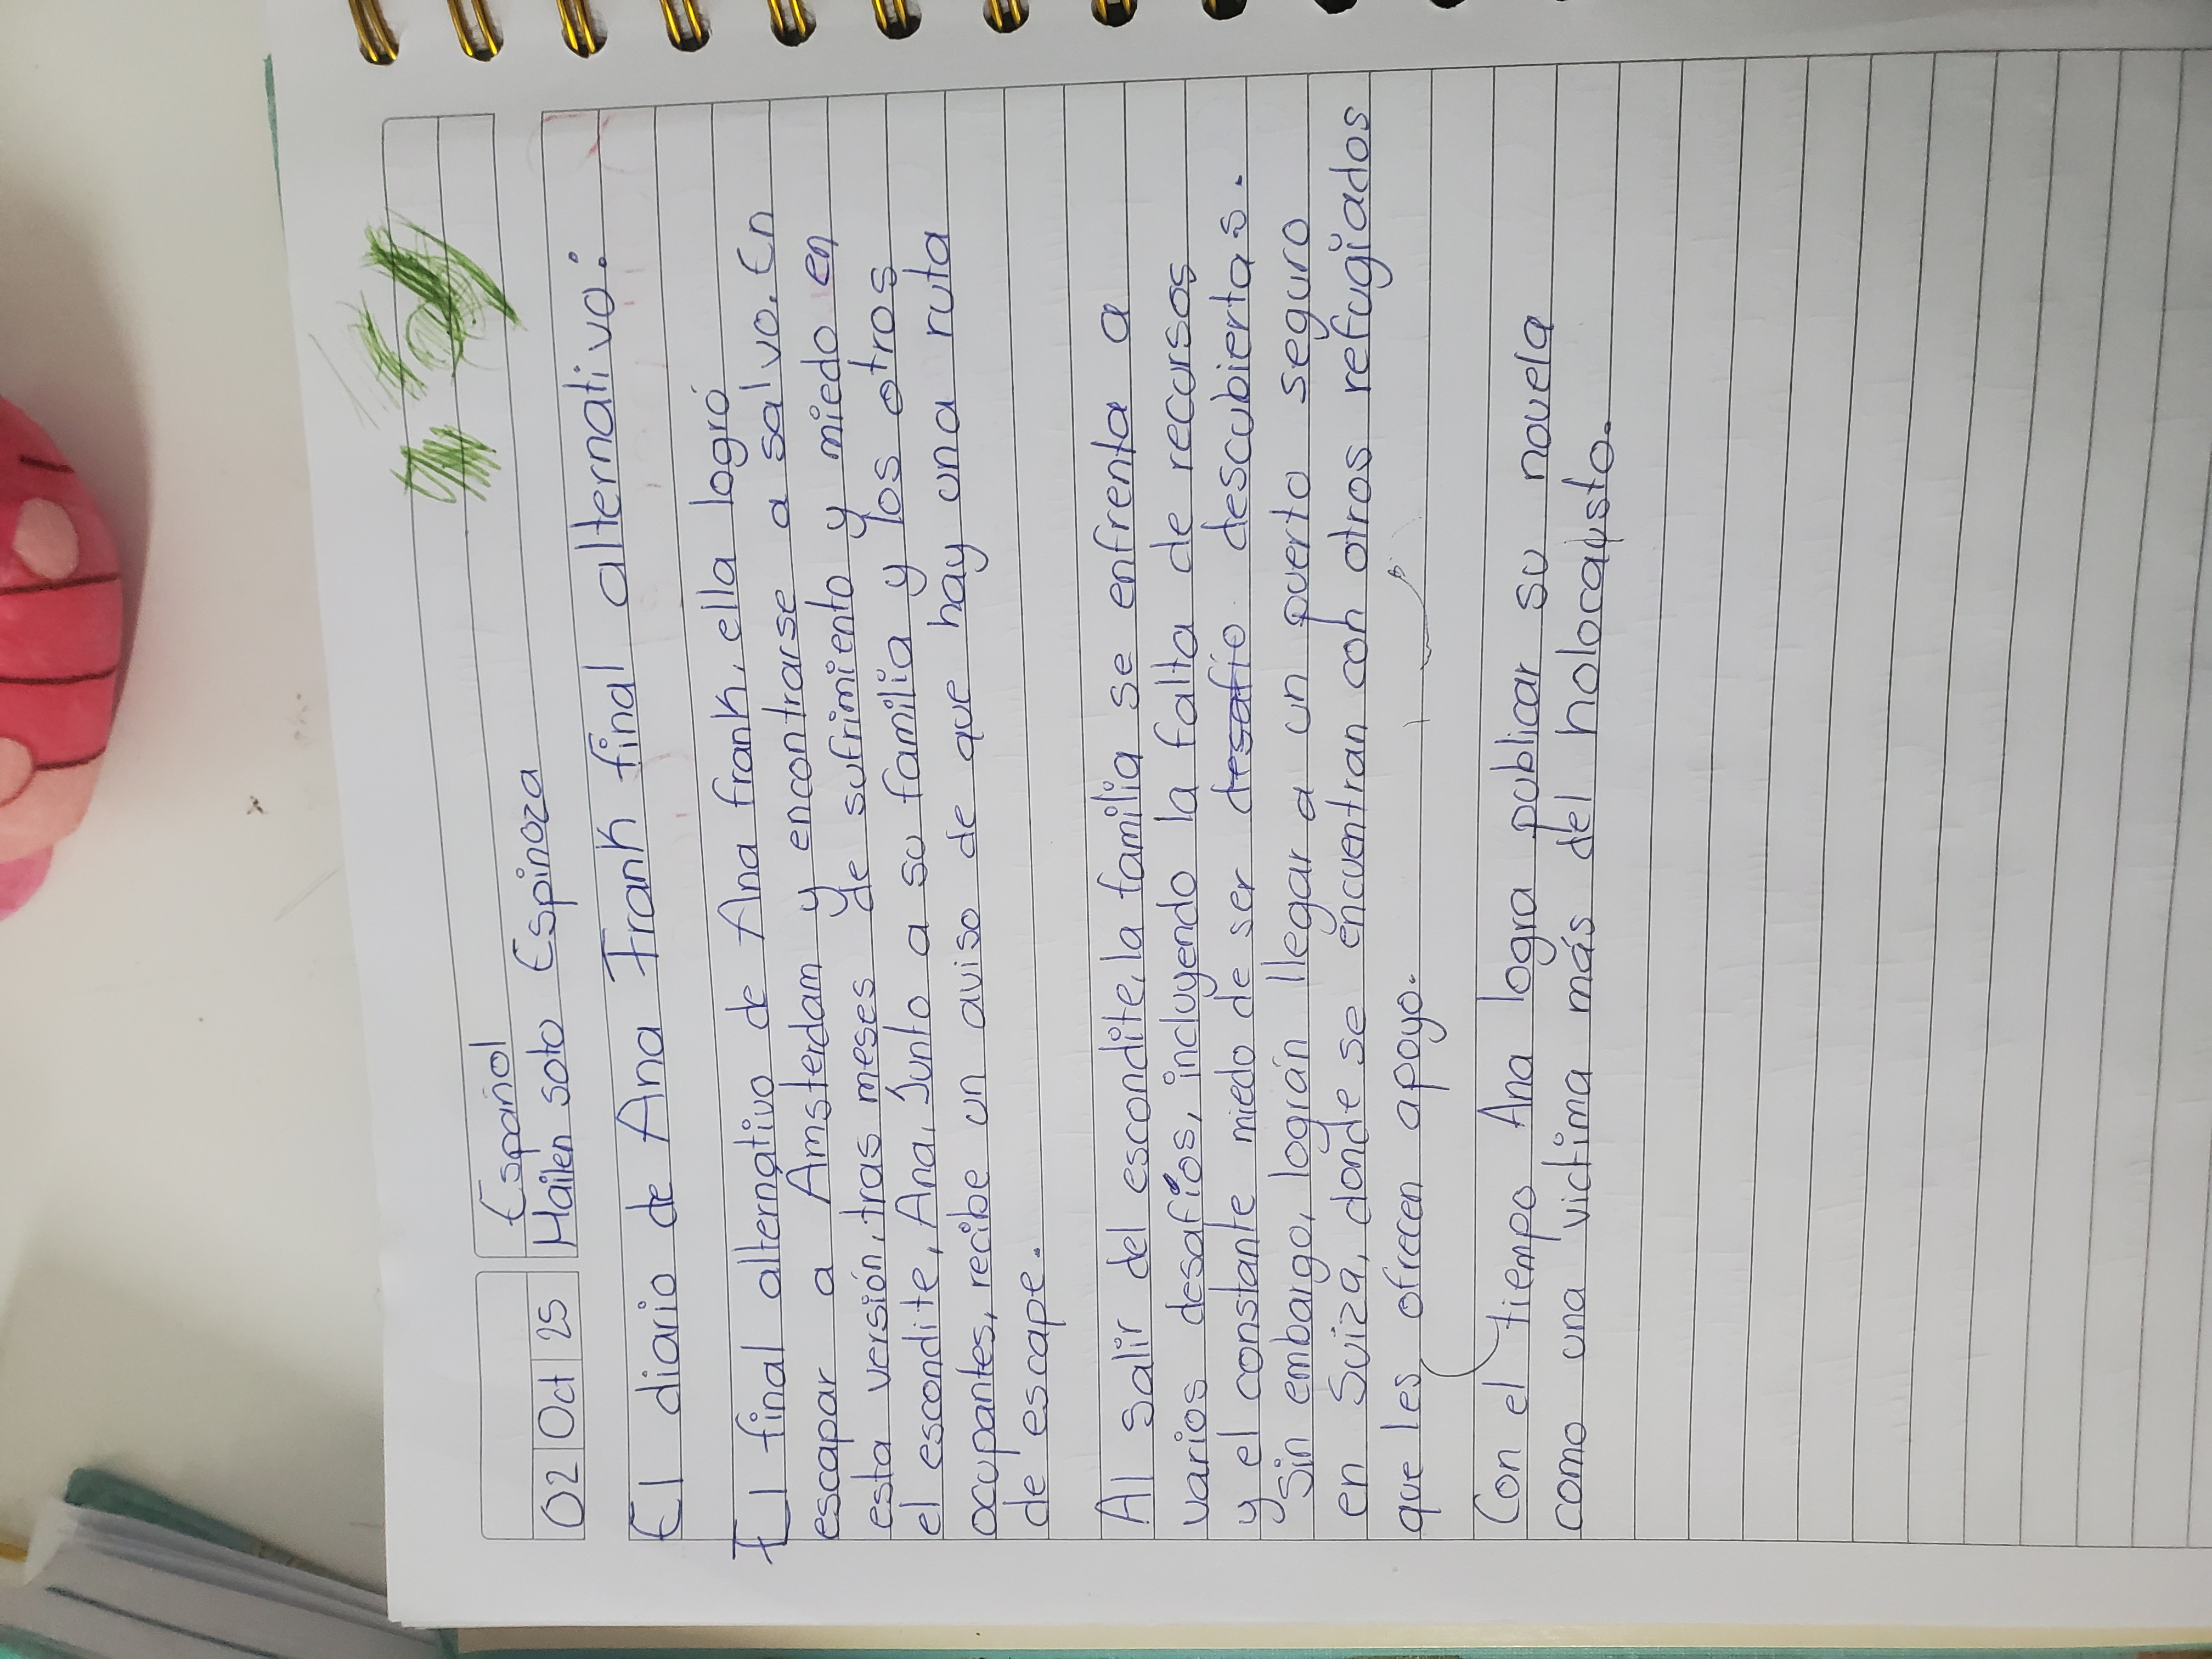 Español
02 Oct 25 Hailen soto Espinoza
El diario de Ana Frank final alternativo:
El final alternativo de Ana frank, ella logró
escapar a Amsterdam y encontrarse a salvo. En
esta versión, tras meses de sufrimiento y miedo en
el escondite, Ana, Junto a su familia y los otros
ocupantes, recibe un aviso de que hay una ruta
de escape.
Al salir del escondite, la familia se enfrenta a
varios desafíos, incluyendo la falta de recursos
y el constante miedo de ser desafío descubiertas.
Sin embargo, logran llegar a un puerto seguro
en Suiza, donde se encuentran con otros refugiados
que les ofrecen apoyo.
Con el tiempo Ana logra publicar su novela
como una victima más del holocausto.